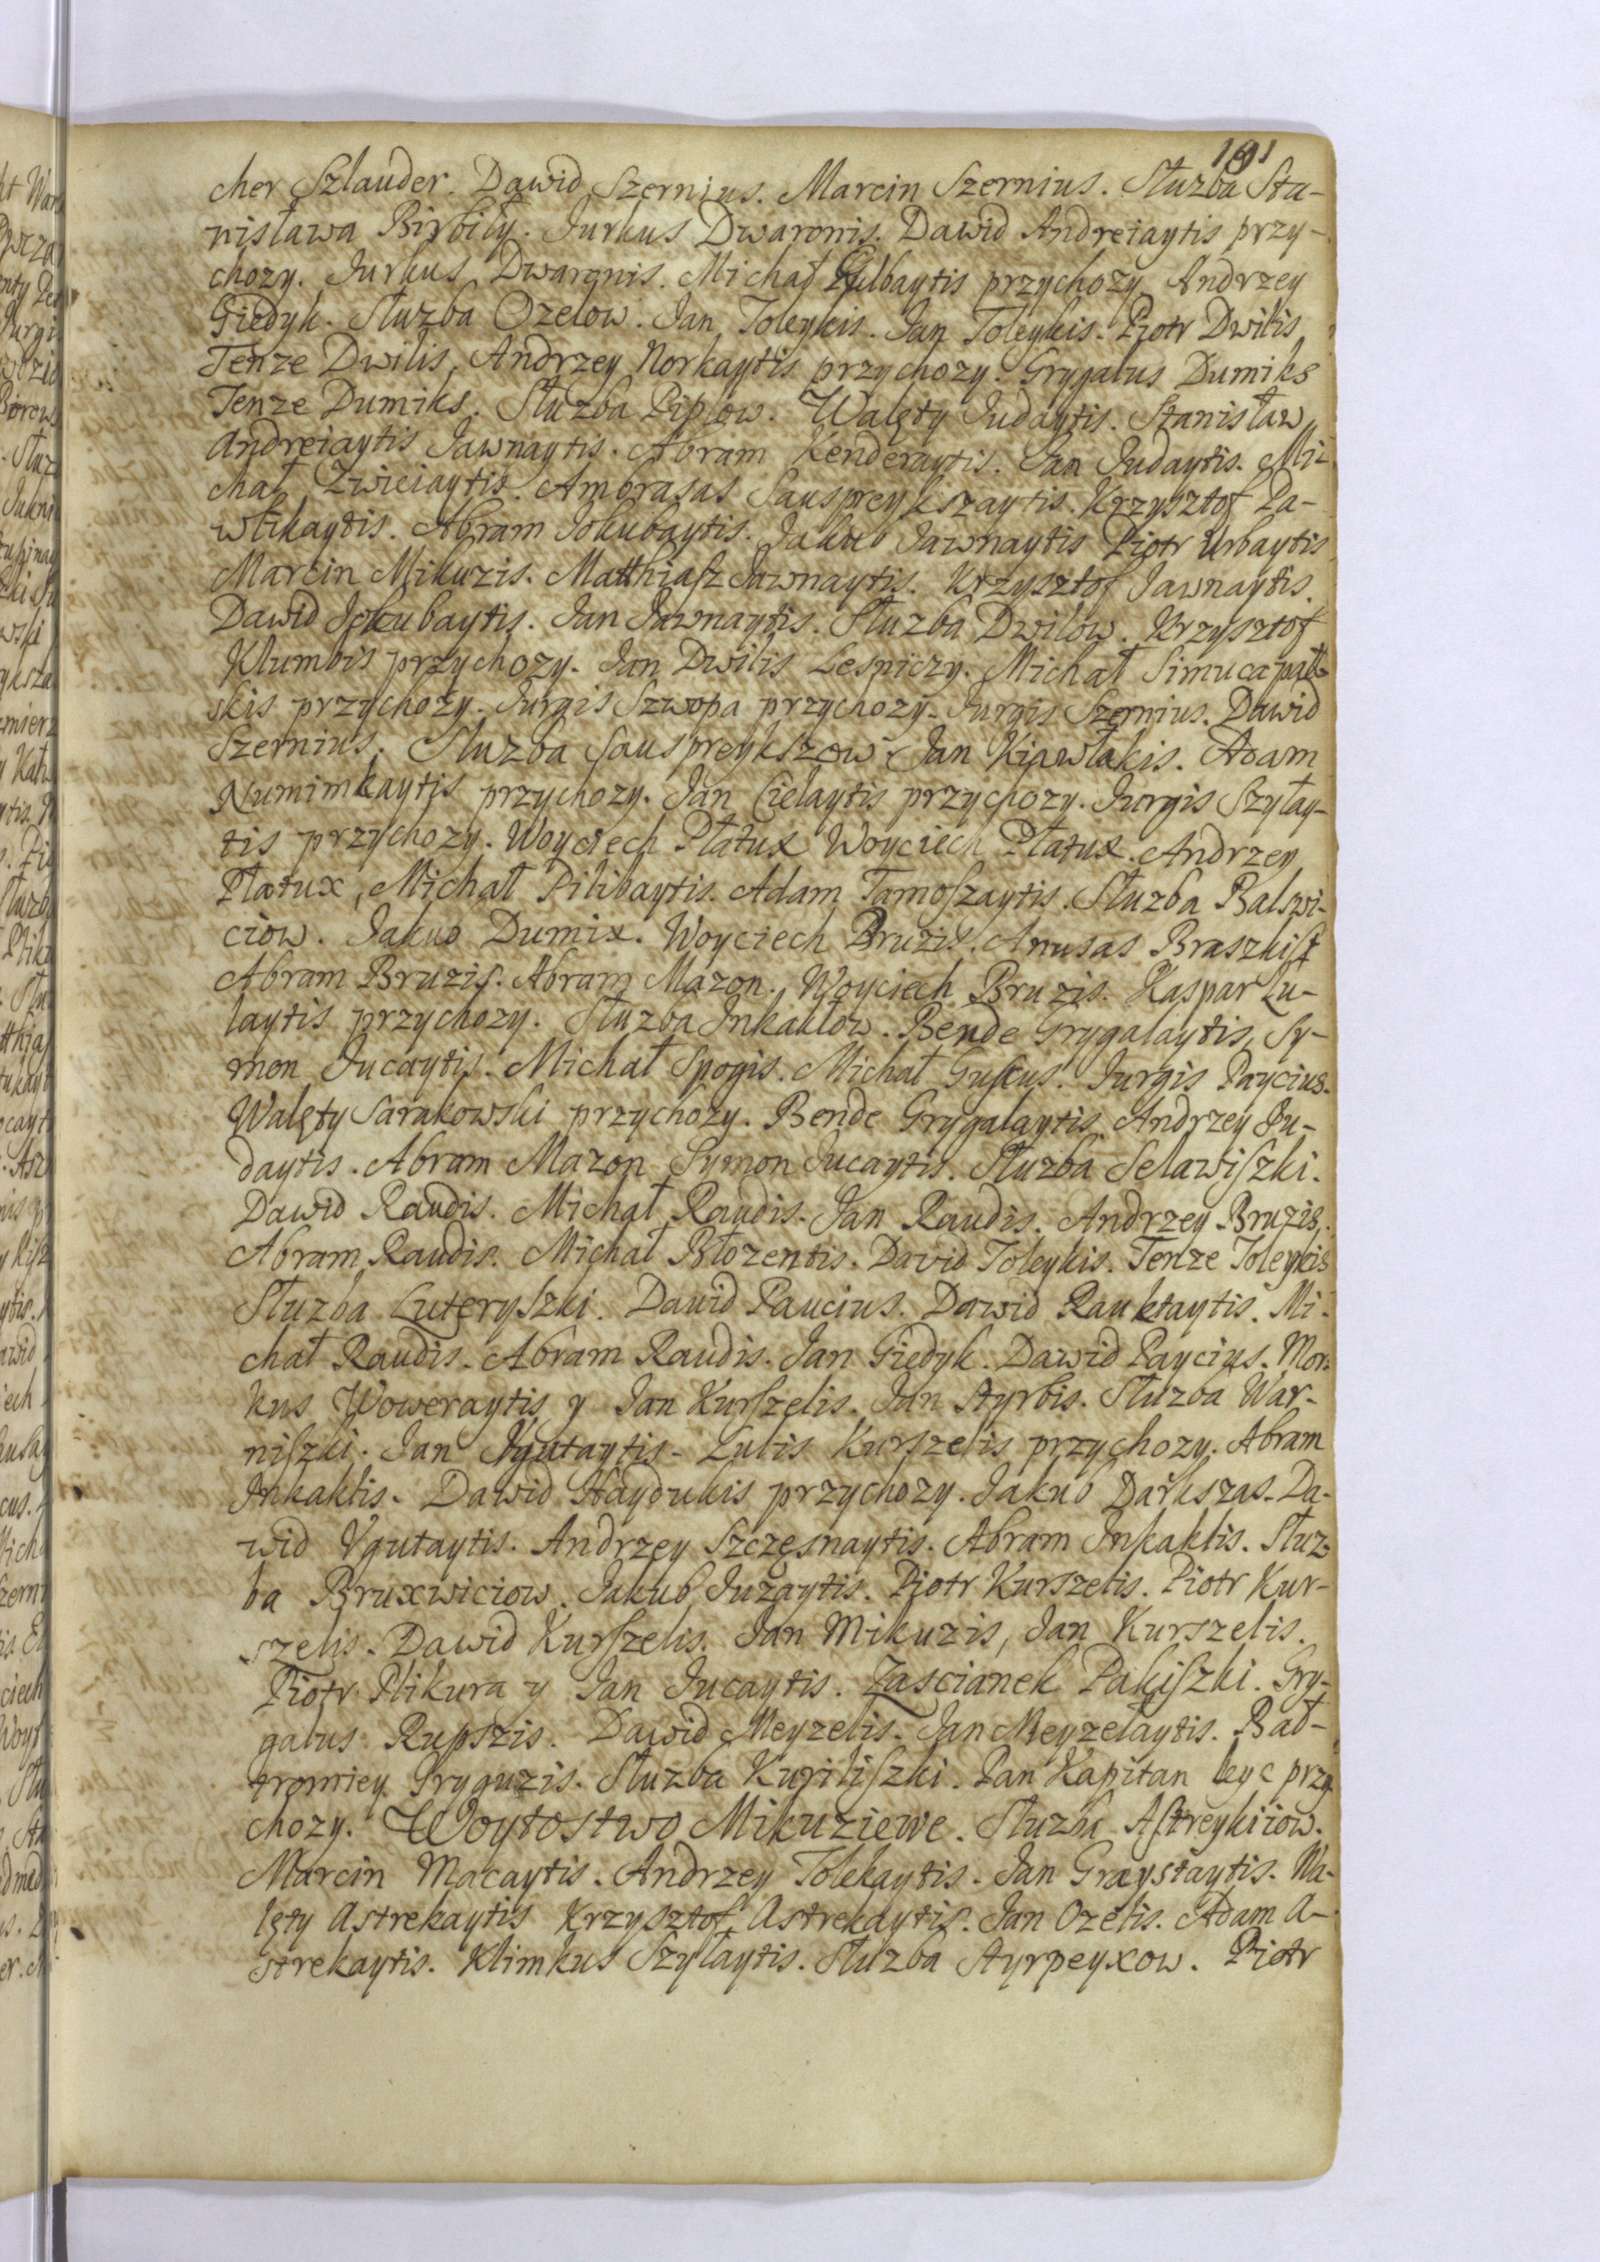 191
cher Szlauder. Dawid Szernius. Marcin Szernius. Służba Sta-
nisława Birbiły. Jurkus Dwaronis. Dawid Andreiaytis przy-
chozy. Jurkus Dwaronis. Michał Gulbaytis przychozy Andrzey
Giedyk. Służba Ozelow. Jan Toleykis. Jan Toleykis. Piotr Dwilis
Tenze Dwilis, Andrzey Norkaytis przychozy. Grygalus Dumiks
Tenze Dumiks. Służba Piplow. Walęty Judaytis. Stanisław
Andreiaytis Jawnaytis. Abram Kenderaytis. Jan Judaytis. Mi-
chał Zwiciaytis. Ambrasas Sauspreykszaytis. Krzysztof Pa-
wlikaytis. Abram Jokubaytis. Jakub Jawnaytis Piotr Urbaytis
Marcin Mikuzis. Matthiasz Jawnaytis. Krzysztof Jawnaytis.
Dawid Jokubaytis. Jan Jawnaytis. Służba Dwilow. Krzysztof
Klumbis przychozy. Jan Dwilis Lesniczy. Michał Simucapał-
skis przychozy. Jurgis Szwopa przychozy. Jurgis Szernius. Dawid
Szernius. Służba Sauspreykszow Jan Kiawlakis. Adam
Numimkaytis przychozy. Jan Cielaytis przychozy. Jurgis Szyłay-
tis przychozy. Woyciech Płatux Woyciech Płatux. Andrzey
Płatux, Michał Pilibaytis. Adam Tamoszaytis. Służba Balswi-
ciow. Jakub Dumix. Woyciech Bruzis. Anusas Braszkist
Abram Bruzis. Abram Mazon. Woyciech Bruzis. Kaspar Lu-
laytis przychozy. Służba Inkaklow. Bende Grygalaytis, Sy-
mon Jucaytis. Michał Spogis. Michał Guskus. Jurgis Paycius.
Walęty Sarakowski przychozy. Bende Grygalaytis Andrzey Ju-
daytis. Abram Mazon Symon Jucaytis. Służba Selawiszki.
Dawid Raudis. Michał Raudis. Jan Raudis. Andrzey Bruzis.
Abram Raudis. Michał Błozentis. David Toleykis. Tenze Toleykis
Służba Luteryszki. Dawid Paucius. Dawid Rauktaytis. Mi-
chał Raudis. Abram Raudis. Jan Giedyk. Dawid Paycius. Mor-
kus Woweraytis y Jan Kurszelis. Jan Styrbis. Służba War-
niszki. Jan Ygutaytis. Lulis Kurszelis przychozy. Abram
Inkaklis. Dawid Haydukis przychozy. Jakub Darkszas. Da-
wid Ygutaytis. Andrzey Szczęsnaytis. Abram Inkaklis. Służ-
ba Bruxwiciow. Jakub Juzaytis. Piotr Kurszelis. Piotr Kur-
szelis. Dawid Kurszelis. Jan Mikuzis, Jan Kurszelis.
Piotr Plikura y Jan Jucaytis. Zascianek Pakiszki. Gry-
galus Rupszis. Dawid Meyzelis. Jan Meyzelaytis. Bał-
tromiey Gryguzis. Służba Kuriliszki. Pan Kapitan Leyc przy
chozy. Woytostwo Mikuziewe. Służba Astreykiiow.
Marcin Macaytis. Andrzey Tolekaytis. Jan Graystaytis. Wa-
lęty Astrekaytis Krzysztof Astrekaytis. Jan Ozelis. Adam A-
strekaytis. Klimkus Szyłaytis. Służba Styrpeyxow. Piotr